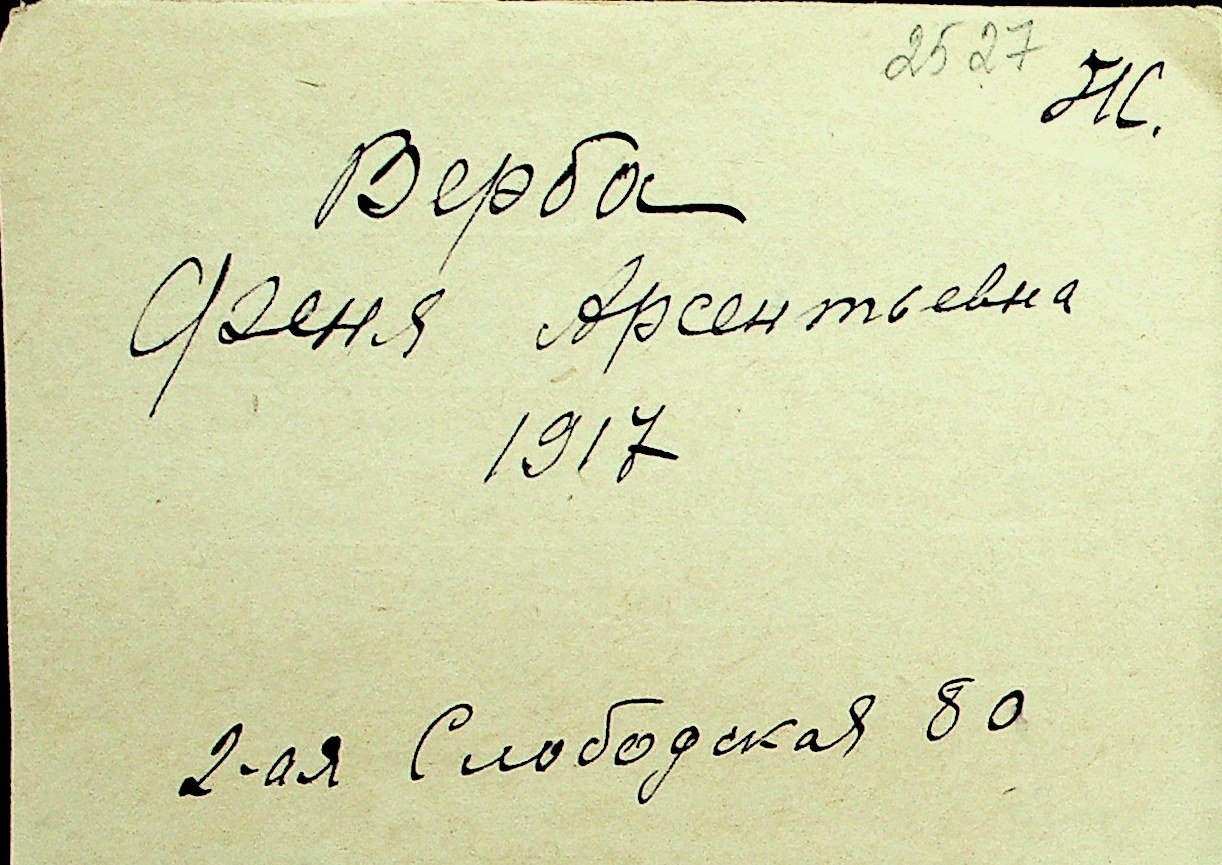 2527
Ж.
Верба
Феня Арсентьевна
1917
2-ая Слободская 80